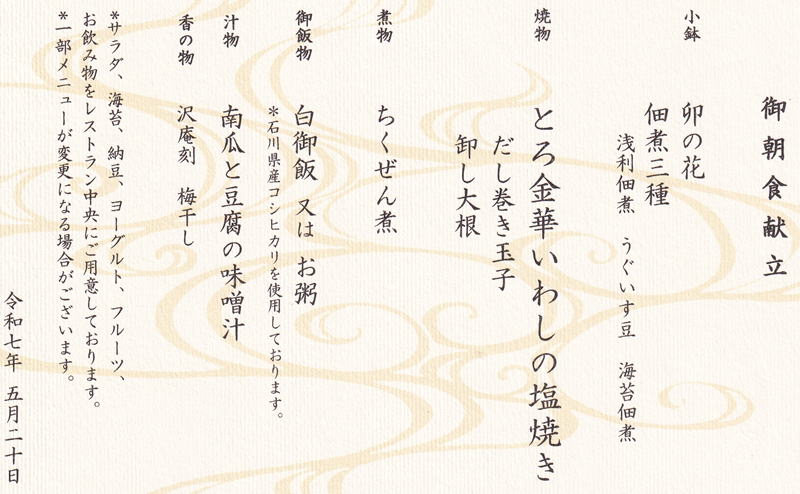 御朝食献立
小鉢
卯の花
佃煮三種
浅利佃煮 うぐいす豆 海苔佃煮
焼物
とろ金華いわしの塩焼き
だし巻き玉子
卸し大根
煮物
ちくぜん煮
御飯物
白御飯 又は お粥
*石川県産コシヒカリを使用しております。
汁物
南瓜と豆腐の味噌汁
香の物
沢庵刻 梅干し
*サラダ、海苔、納豆、ヨーグルト、フルーツ、
お飲み物をレストラン中央にご用意しております。
*一部メニューが変更になる場合がございます。
令和七年 五月二十日